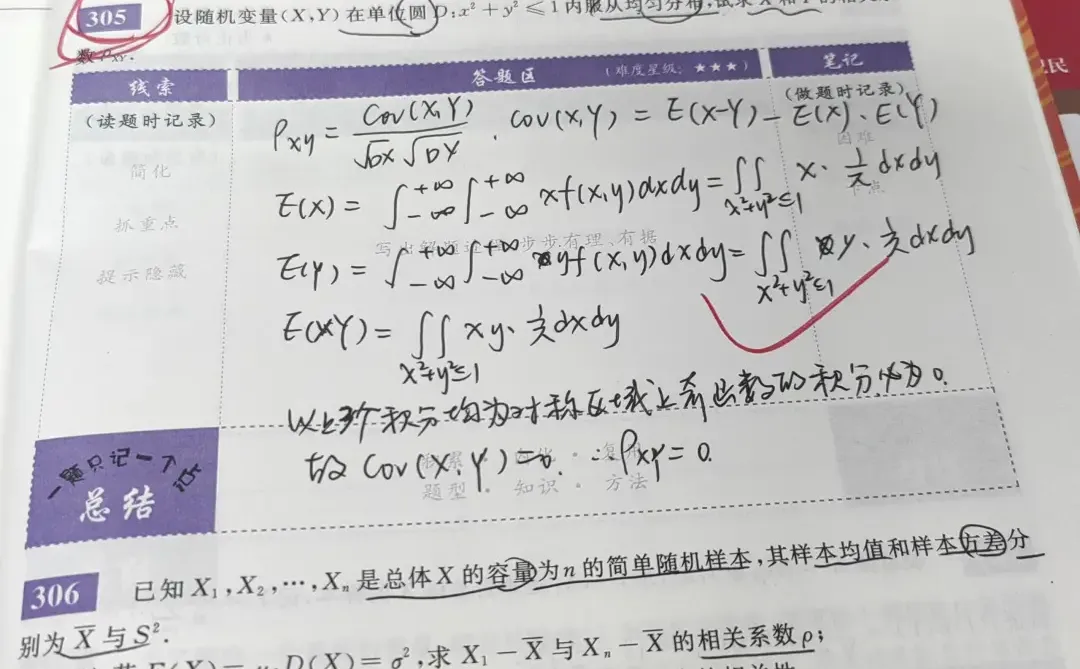 305 设随机变量(X,Y)在单位圆D:x²+y²≤1内服从均匀分布,试求X和Y的相关系
数ρXY.
线索 答题区 (难度星级:★★★) 笔记
(读题时记录) (做题时记录)
ρxy = Cov(X,Y)/√DX √DY . Cov(X,Y) = E(X-Y) - E(X)·E(Y)
简化 困难
E(X) = ∫-∞+∞∫-∞+∞ xf(x,y)dxdy = ∬x²+y²≤1 x·1/π dxdy
抓重点
步步有理、有据
E(Y) = ∫-∞+∞∫-∞+∞ yf(x,y)dxdy = ∬x²+y²≤1 y·1/π dxdy
提示隐藏
E(XY) = ∬x²+y²≤1 xy·1/π dxdy
以上3个积分均为对称区域上奇函数的积分,必为0.
一题只记一个点
总结
故Cov(X,Y)=0. ∴ρXY=0.
题型·知识·方法
306 已知X₁,X₂,⋯,Xₙ是总体X的容量为n的简单随机样本,其样本均值和样本方差分
别为X̄与S².
D(X)=σ²,求X₁-X̄与Xₙ-X̄的相关系数ρ;